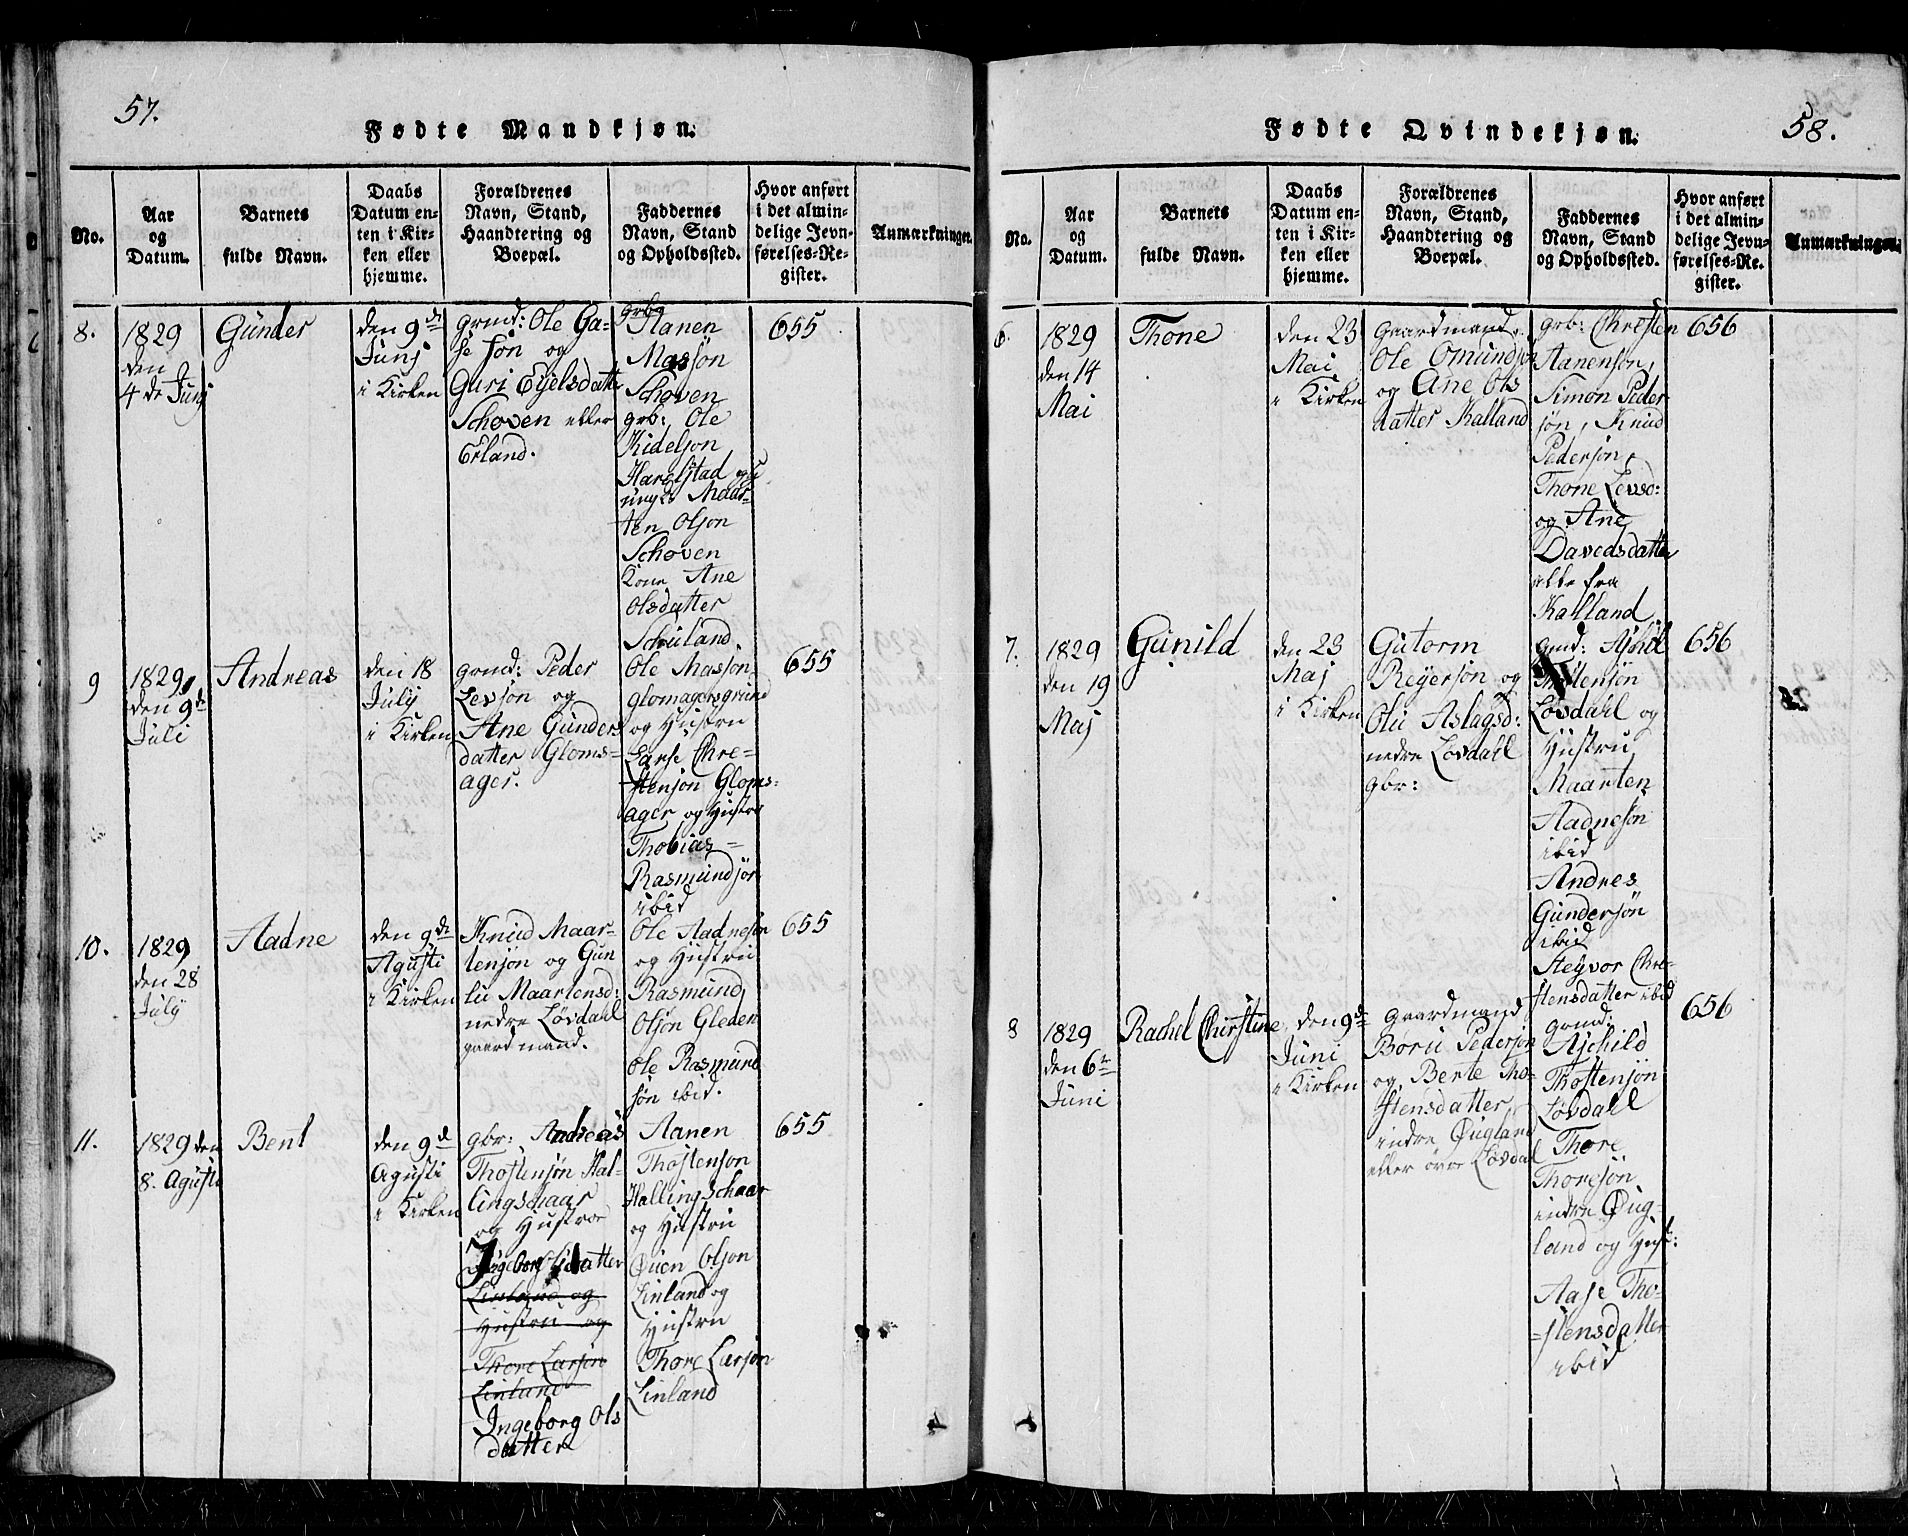 57.
Fødte Mandkjøn.
No.
Aar
og
Datum.
Barnets
fulde Navn.
Daabs
Datum en-
ten i Kir-
ken eller
hjemme.
Forældrenes
Navn, Stand,
Haandtering og
Boepæl.
Faddernes
Navn, Stand
og Opholdssted.
Hvor anført
i det almin-
delige Jevn-
førelses-Re-
gister.
Anmærkninger.
8.
1829
den
4de Junj
Gunder
den 9de
Junj
i Kirken
grmd: Ole Ga-
se søn og
Guri Eyelsdatter
Schoven eller
Erland.
grbg
Aanen
Masjøn
Schoven
grb: Ole
Kidelsøn
Harelstad og
ungk Maar-
ten Olsøn
Schoven
Kone Ane
Olsdatter
Schuland.
655
9
1829
den 9de
Juli
Andreas
den 18
July
i Kirken
grmd: Peder
Levsøn og
Ane Gunders
datter Gloms-
ager.
Ole Masjøn
Glomagersgrund
og Hustru
Larse Chre-
stensøn Gloms-
ager og Hustru
Thobias
Rasmundsøn
ibid
655
10.
1829
den 28
July
Aadne
den 9de
Agusti
i Kirken
Knud Maar-
tensøn og Gun
lu Maartensd:
nedre Løvdahl
gaardmand.
Ole Aadnesøn
og Hustru
Rasmund
Olsøn Gleden
Ole Rasmund
søn ibid.
655
11.
1829 den
8. Agusti
Bent
den 9d
Agusti
i Kirken
gbr: Andreas
Thostensøn Hal-
lingschaar
og Hustroe
Ingeborg Olsdatter
Linland og
Hustru og
Thore Larsøn
Linland
Ingeborg Ols
datter
Aanen
Thostenson
Hallingschaar
og Hustru
Øuen Olson
Linland og
Hustru
Thore Larsøn
Linland
655
Fødte Qvindekjøn.
58.
No.
Aar
og
Datum.
Barnets
fulde Navn.
Daabs
Datum en-
ten i Kir-
ken eller
hjemme.
Forældrenes
Navn, Stand,
Haandtering og
Boepæl.
Faddernes
Navn, Stand
og Opholdssted.
Hvor anført
i det almin-
delige Jevn-
førelses-Re-
gister.
Anmærkninger.
6.
1829
den 14
Mai
Thone
den 23
Mai
i Kirken
Gaardmand
Ole Omundsøn
og Ane Ols
datter Kalland
grb: Chresten
Aanensøn,
Simon Peder
søn, Knud
Pedersøn,
Thone Levsd:
og Ane
Davedsdatter
alle fra
Kalland
656
7.
1829
den 19
Maj
Gunild
den 23
Maj
i Kirken
Gutorm
Reyersøn og
Olu Aslagsd:
nedre Løvdahl
gbr:
gmd: Ajshil
Thostensøn
Løvdahl og
Hustru
Maarten
Aadnesøn
ibid
Andres
Gundersøn
ibid
Steyvor Chre-
stensdatter ibid
656
8
1829
den 6te
Juni
Rachel Chirstine
den 9de
Juni
i Kirken
Gaardmand
Børu Pedersøn
og Berte Tho-
stensdatter
indre Øugland
eller øvre Løvdal
grmd:
Ajchild
Thostensøn
Løvdahl
Thore
Thoresøn
indre Øug-
land og Hust:
Aase Tho-
stensdatter
ibid
656